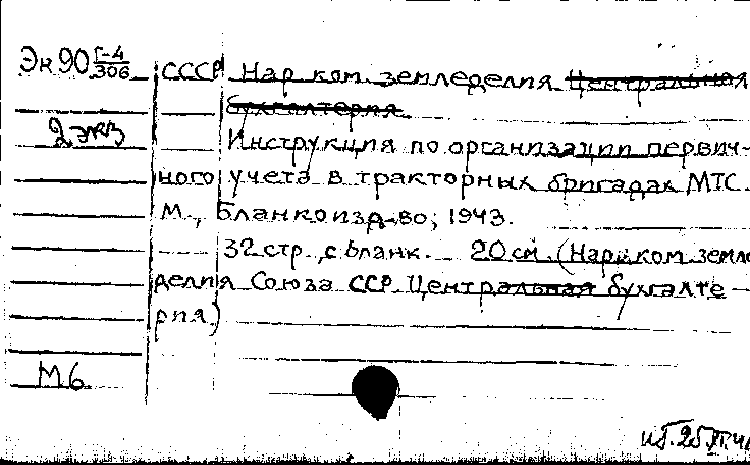 Эк90 Г-4/306 СССР Нар. ком. земледелия Центральная
бухгалтерия.
2 экз Инструкция по организации первич-
ного учета в тракторных бригадах МТС.
М., Бланкоизд-во, 1943.
32 стр. с бланк. 20 см. (Нар. ком. земле
делия Союза ССР. Центральная бухгалте-
рия)
М6